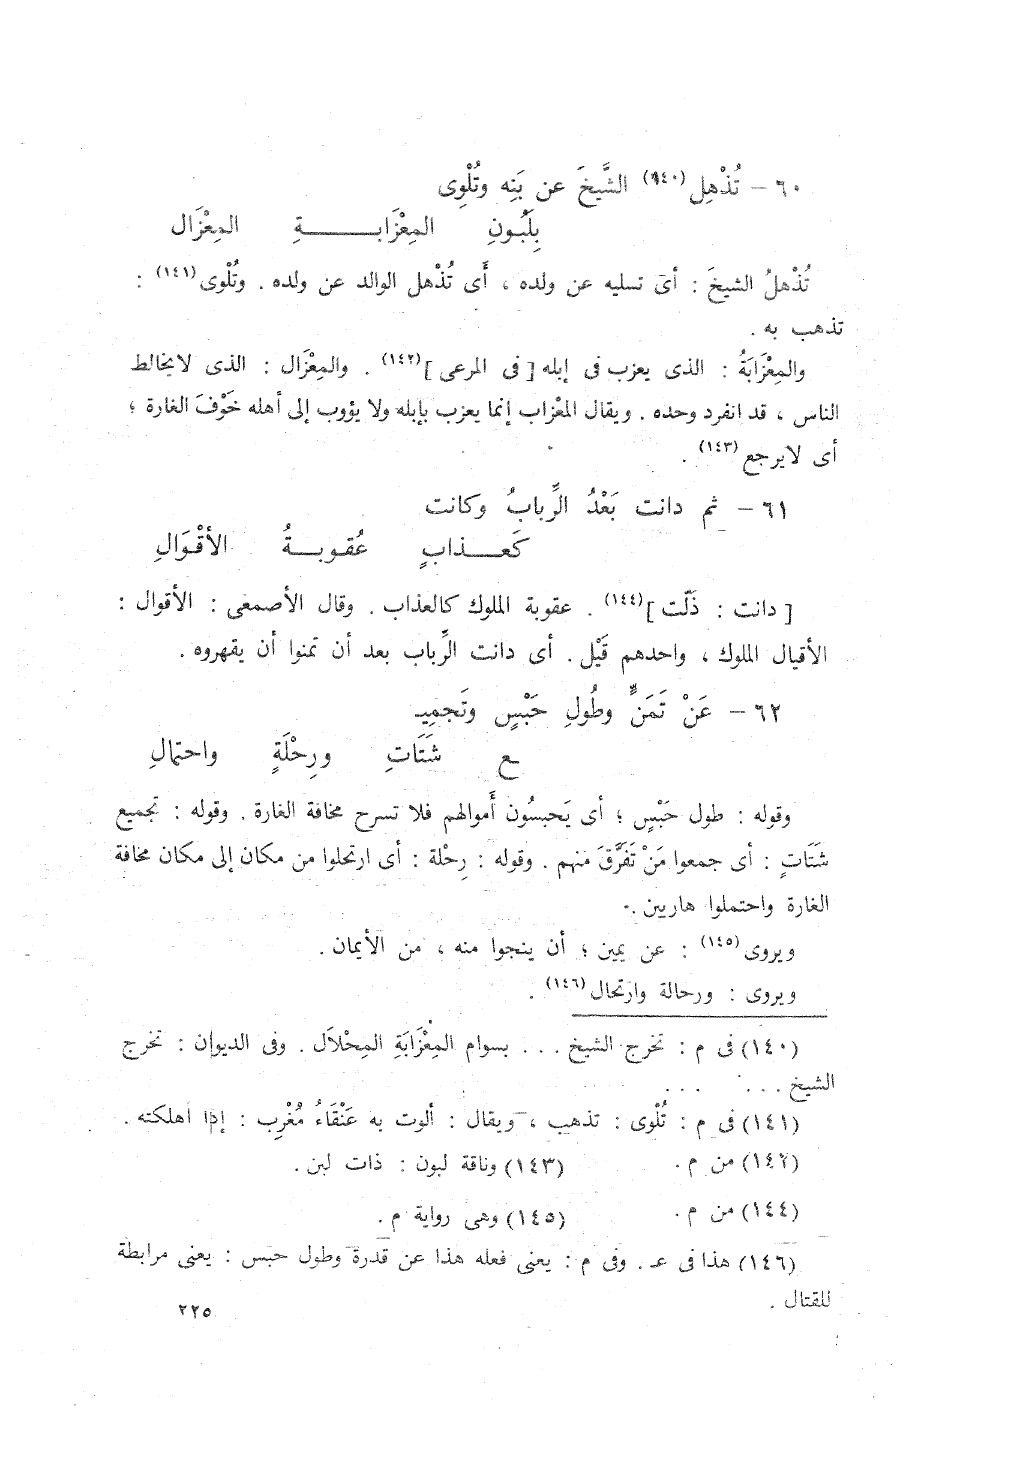 ٦٠ – تُذْهِل(١٤٠) الشَّيخَ عن بَنِه وتُلْوِى
بِلَبُونِ المِعْزَابــــةِ المِعْزَال
تُذْهلُ الشيخَ : أى تسليه عن ولده ، أَى تُذْهل الوالد عن ولده . وتُلْوى(١٤١) :
تذهب به .
والمِعْزَابَةُ : الذى يعزب فى إبله [ فى المرعى ](١٤٢) . والمِعْزَال : الذى لايخالط
الناس ، قد انفرد وحده . ويقال المعْزاب إنما يعزب بإبله ولا يؤوب إلى أهله خَوْفَ الغارة ؛
أى لايرجع(١٤٣) .
٦١ – ثم دانت بَعْدُ الرِّبابُ وكانت
كَعــذابٍ عُقوبــةُ الأقْوَالِ
[ دانت : ذَلّت ](١٤٤) . عقوبة الملوك كالعذاب . وقال الأصمعى : الأقوال :
الأقيال الملوك ، واحدهم قَيْل . أى دانت الرِّباب بعد أن تمنوا أن يقهروه .
٦٢ – عَنْ تَمَنٍّ وطُولِ حَبْسٍ وتَجمِيـ
ـع شَتَاتِ ورِحْلَةٍ واحتمالِ
وقوله : طول حَبْسٍ ؛ أى يَحبسُون أَموالهم فلا تسرح مخافة الغارة . وقوله : تجميع
شَتَاتٍ : أى جمعوا مَنْ تَفَرَّقَ منهم . وقوله : رِحْلة : أى ارتحلوا من مكان إلى مكان مخافة
الغارة واحتملوا هاربين .
ويروى(١٤٥) : عن يمين ؛ أن ينجوا منه ، من الأيمان .
ويروى : ورحالة وارتحال(١٤٦) .
(١٤٠) فى م : تخرج الشيخ . . . بسوام المِعْزَابَةِ المِحْلاَل . وفى الديوان : تخرج
الشيخ . . . . . .
(١٤١) فى م : تُلْوى : تذهب ، ويقال : ألوت به عَنْقَاءُ مُغْرِب : إذا أهلكته .
(١٤٢) من م . (١٤٣) وناقة لبون : ذات لبن .
(١٤٤) من م . (١٤٥) وهى رواية م .
(١٤٦) هذا فى عـ . وفى م : يعنى فعله هذا عن قدرة وطول حبس : يعنى مرابطة
للقتال .
٢٢٥